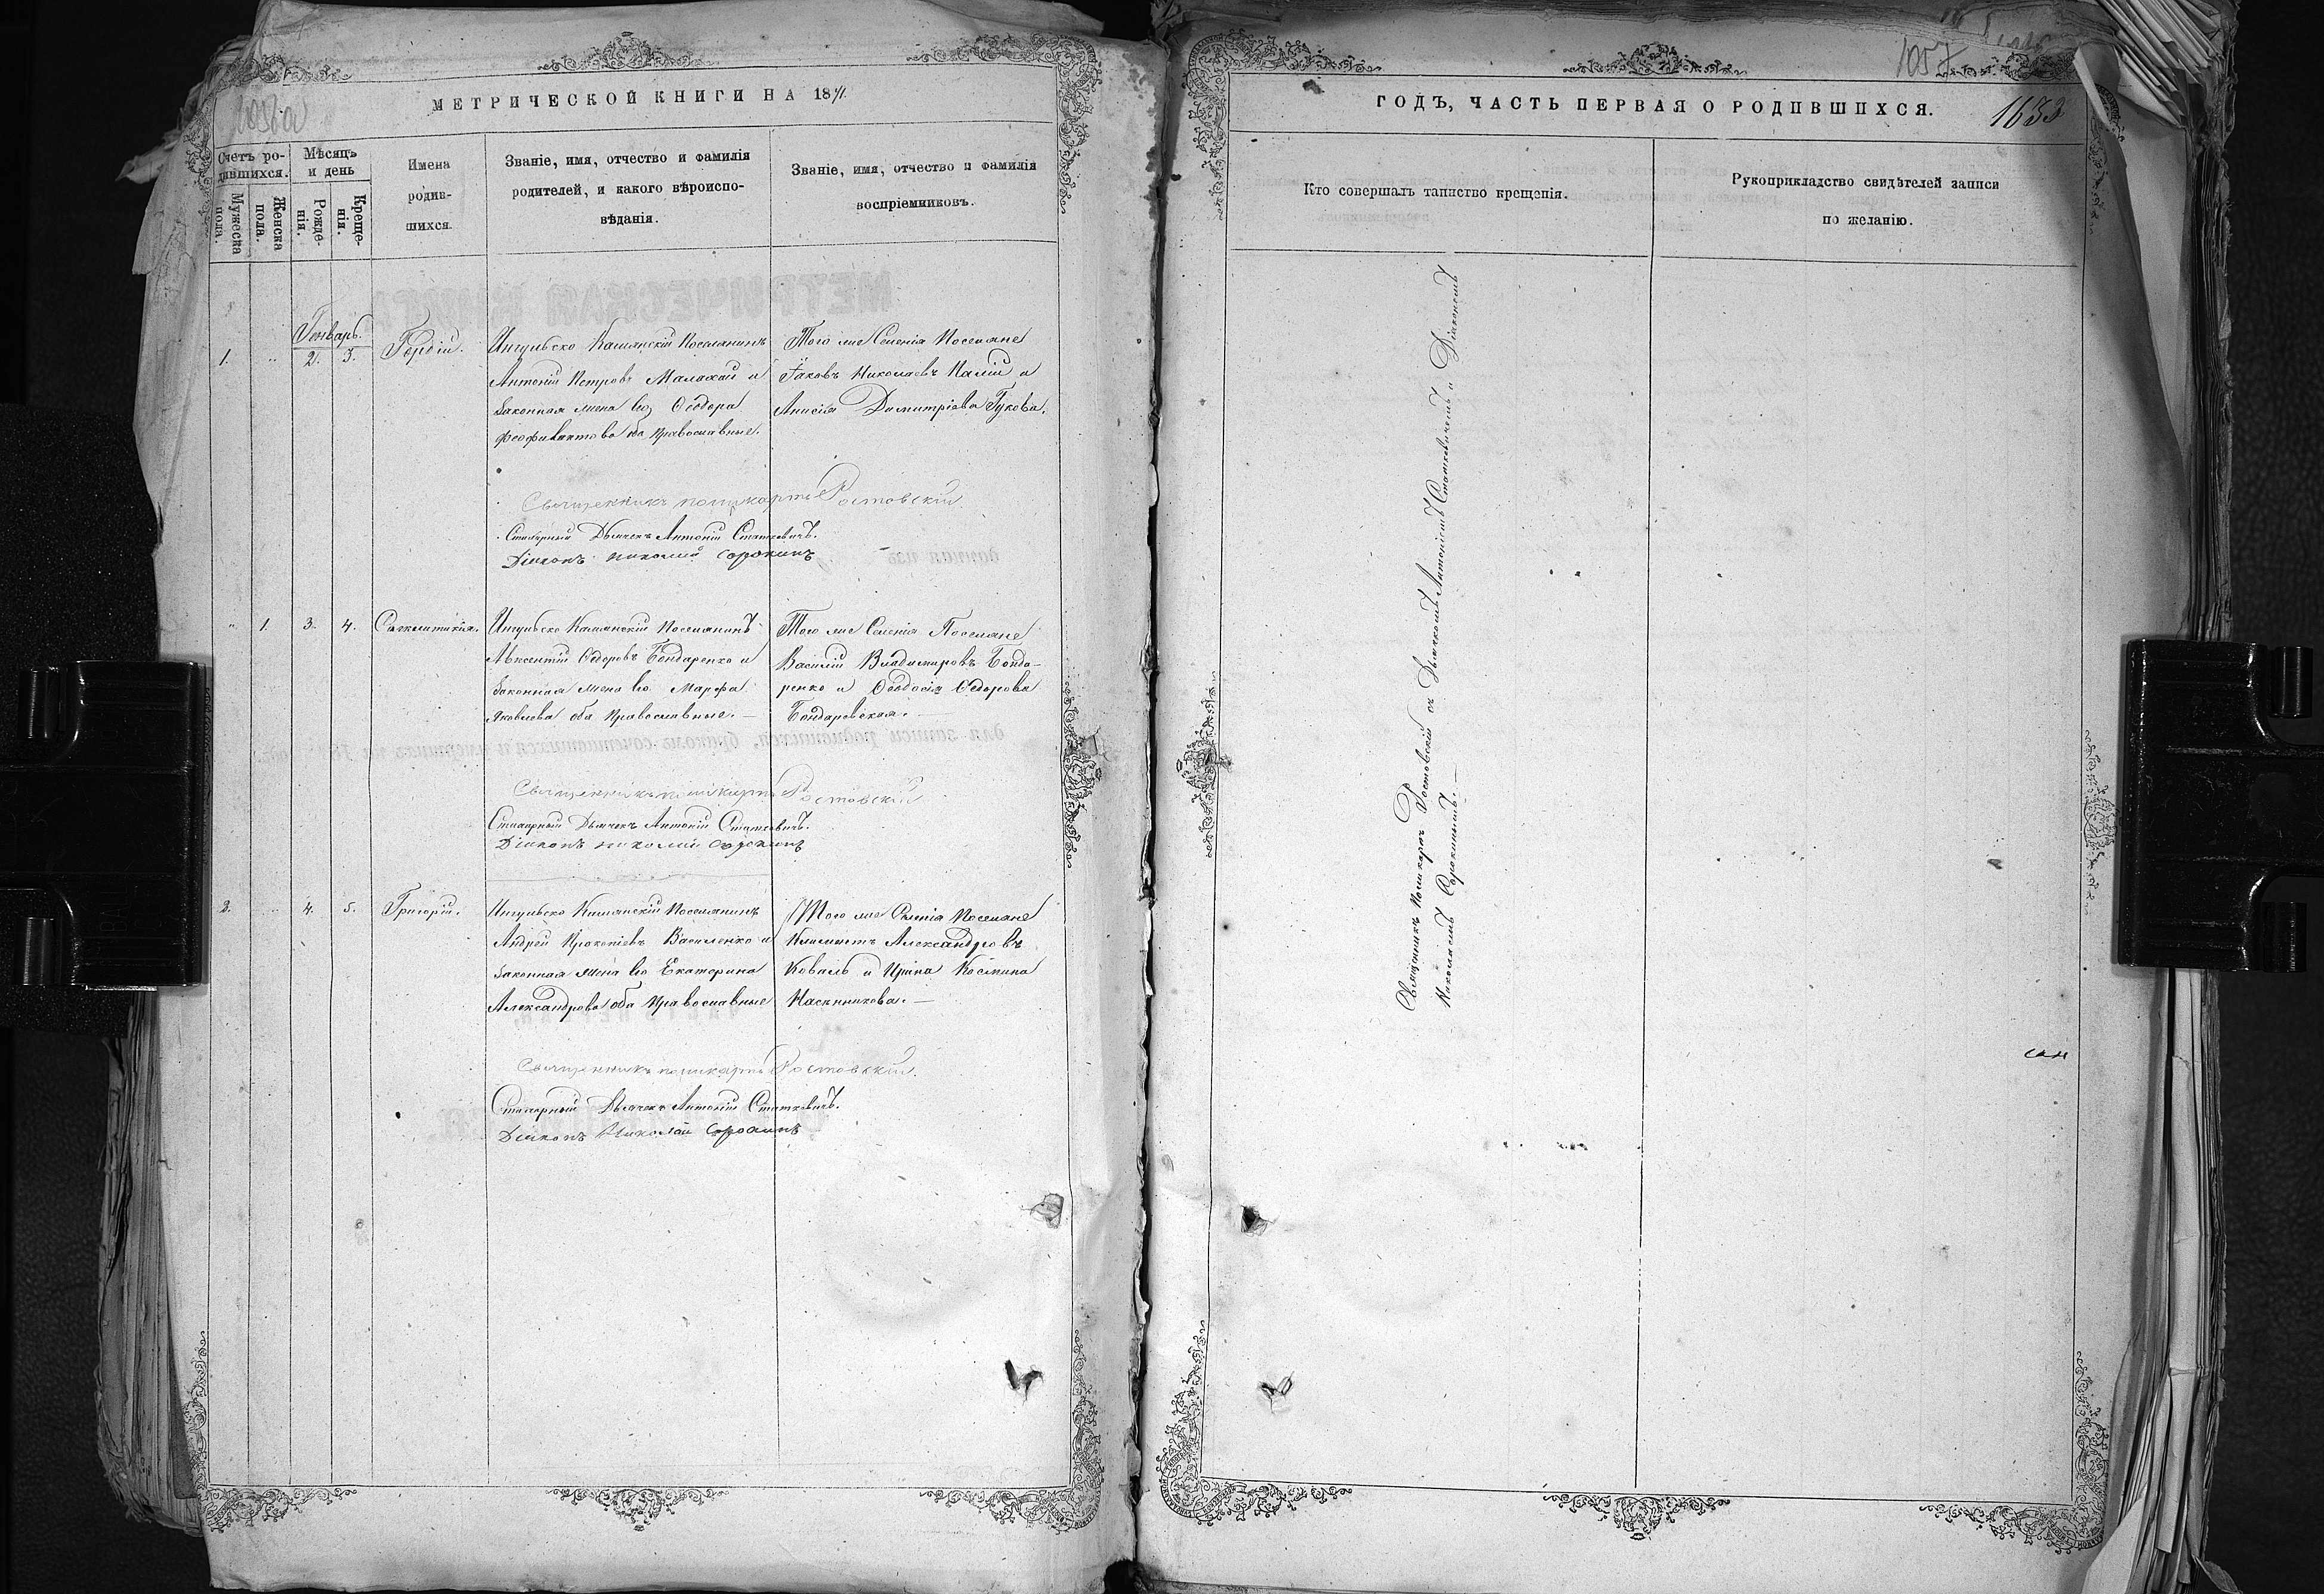 МЕТРИЧЕСКОЙ КНИГИ НА 1871.
Счетъ ро-
дившихся.
Мѣсяцъ
и день
Мужеска
пола.
Женска
пола.
Рожде-
нія.
Креще-
нія.
Имена
родив-
шихся.
Званіе, имя, отчество и фамилія
родителей, и какого вѣроиспо-
вѣданія.
Званіе, имя, отчество и фамилія
воспріемниковъ.
Генварь.
1. „ 2. 3. Гордій.
Ингульско Каменскій Поселянинъ
Антоній Петровъ Малахай и
Законная жена его Ѳеодора
Феофилактова оба Православные.
Того же Селенія Поселяне
Іаковъ Николаевъ Палій и
Анисія Димитріева Гукова.
Священникъ Поликарпъ Ростовскій
Стихарный Дьячекъ Антоній Статкевичъ.
Діаконъ Николай Сорокинъ
„ 1. 3. 4. Сигклитикія.
Ингульско Каменскій Поселянинъ
Авксентій Ѳедоровъ Бондаренко и
Законная жена его Марфа
Яковлева оба Православные. —
Того же Селенія Поселяне
Василій Владимировъ Бонда-
ренко и Ѳеодосія Ѳедорова
Бондаревская. —
Священникъ Поликарпъ Ростовскій
Стихарный Дьячекъ Антоній Статкевичъ.
Діаконъ Николай Сорокинъ
2. „ 4. 5. Григорій.
Ингульско Каменскій Поселянинъ
Андрей Прокопіевъ Василенко и
Законная жена его Екатерина
Александрова оба Православные
Того же Селенія Поселяне
Климентъ Александровъ
Коваль и Ирина Косьмина
Священникъ Поликарпъ Ростовскій.
Стихарный Дьячекъ Антоній Статкевичъ.
Діаконъ Николай Сорокинъ
1057
ГОДЪ, ЧАСТЬ ПЕРВАЯ О РОДИВШИХСЯ.
1633
Кто совершалъ таинство крещенія.
Рукоприкладство свидѣтелей записи
по желанію.
Священникъ Поликарпъ Ростовскій съ Дьячкомъ Антоніемъ Статкевичемъ и Діакономъ
Николаемъ Сорокинымъ. —